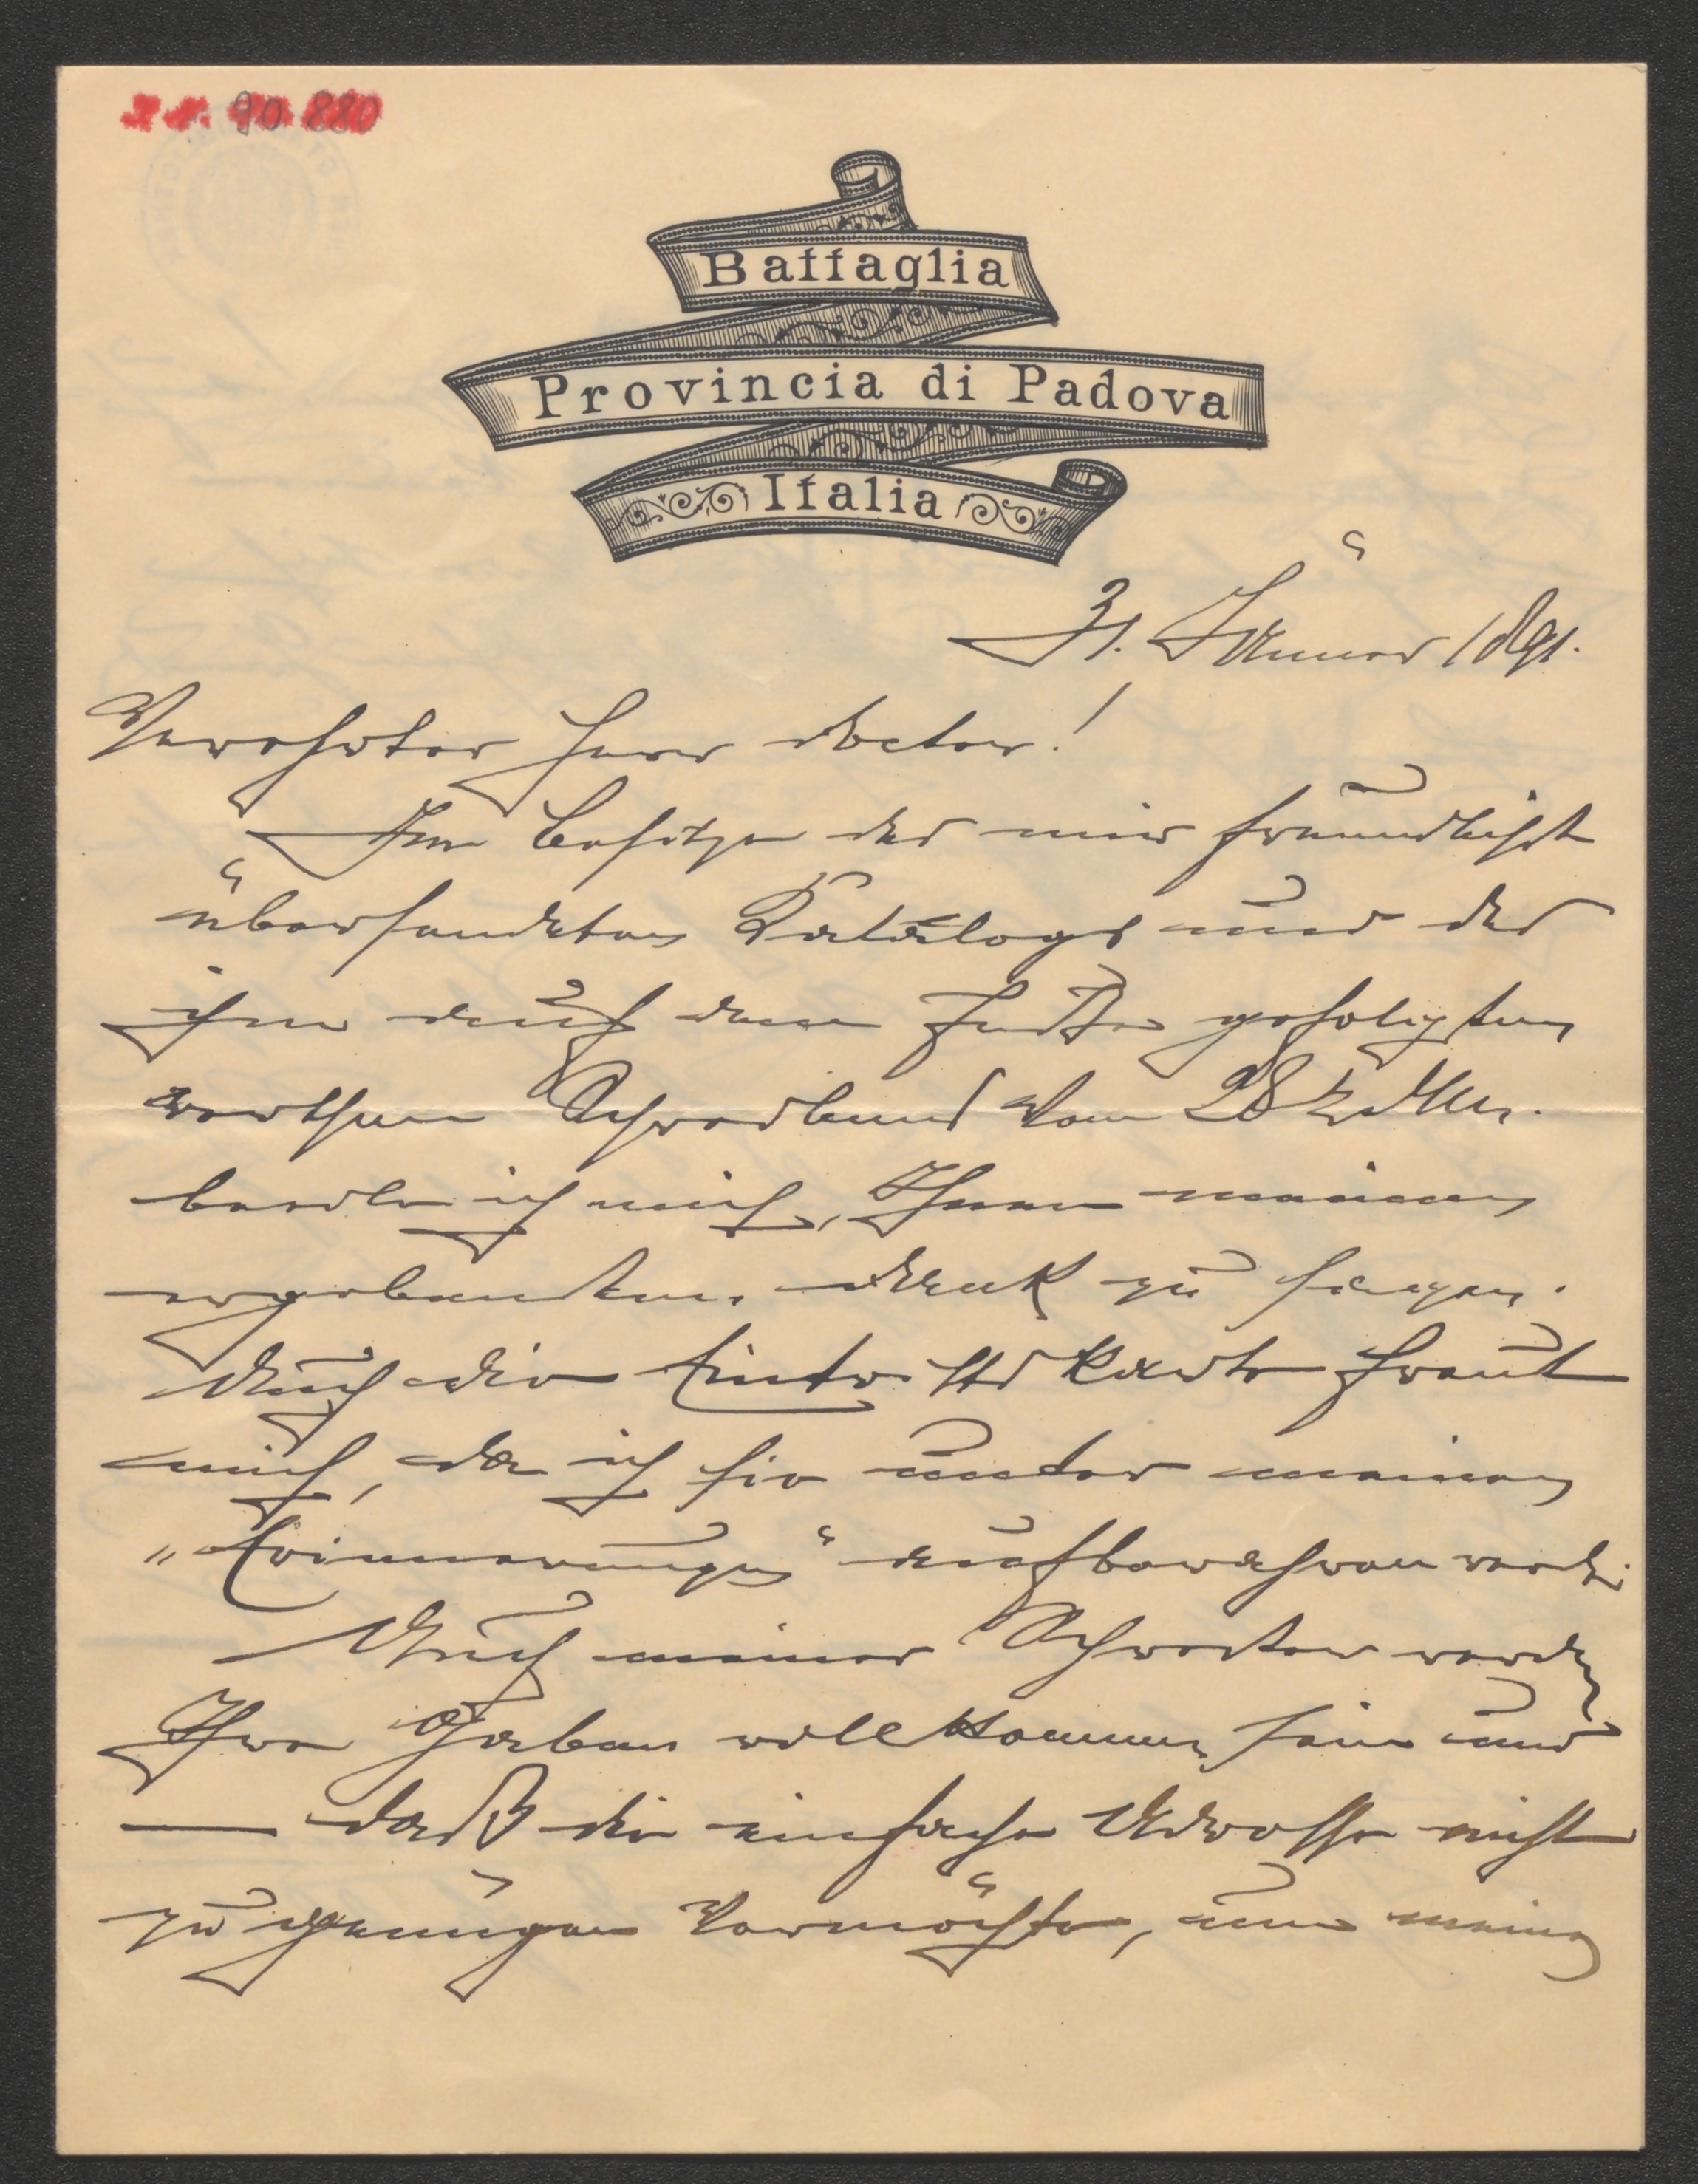 I. N. 90.880
Battaglia
Provincia di Padova
Italia
31. Jänner 1891.
Verehrter Herr Doctor!
Im Besitze des mir freundlichst
übersendeten Katalogs und des
ihm auf dem Fuße gefolgten
werthen Schreibens vom 28 d. Mts.
beeile ich mich, Ihnen meinen
ergebensten Dank zu sagen.
Auch die Eintrittskarte freut
mich, da ich sie unter meinen
„Erinnerungen“ aufbewahren werde.
Auch meiner Schwester werden
Ihre Gaben willkommen sein und
— daß die einfache Adresse nicht
zu genügen vermöchte, um meine